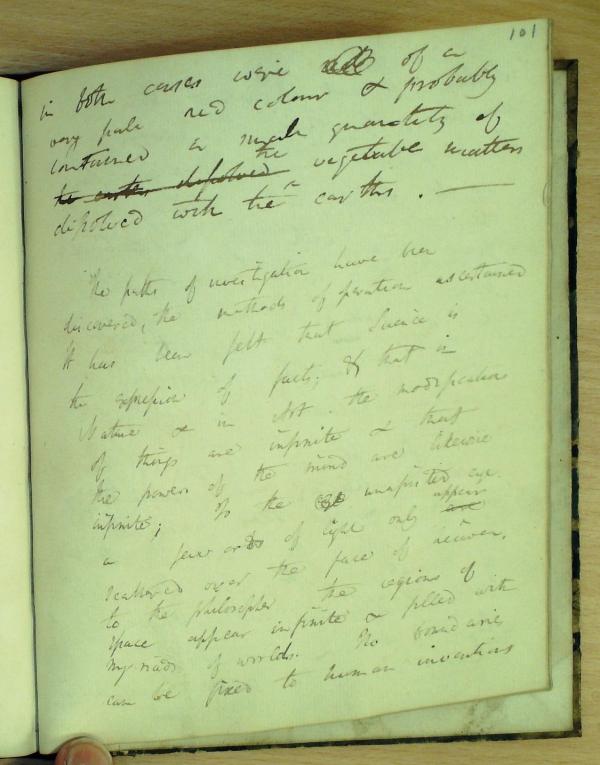 101
in both cases were of a
very pale red colour & probably
contained a small quantity of
the earths dissolved the vegetable matters
dissolved with the earths. —
The paths of investigation have been
discovered, the methods of operation ascertained
It has been felt that Science is
the expression of facts; & that in
Nature & in Art. the modifications
of things are infinite & that
the powers of the mind are likewise
infinite; To the unassisted eye.
a few orbs of light only are appear
scattered over the face of heaven.
to the philosopher the regions of
space appear infinite & filled with
myriads of worlds. No boundaries
can be fixed to human inventions